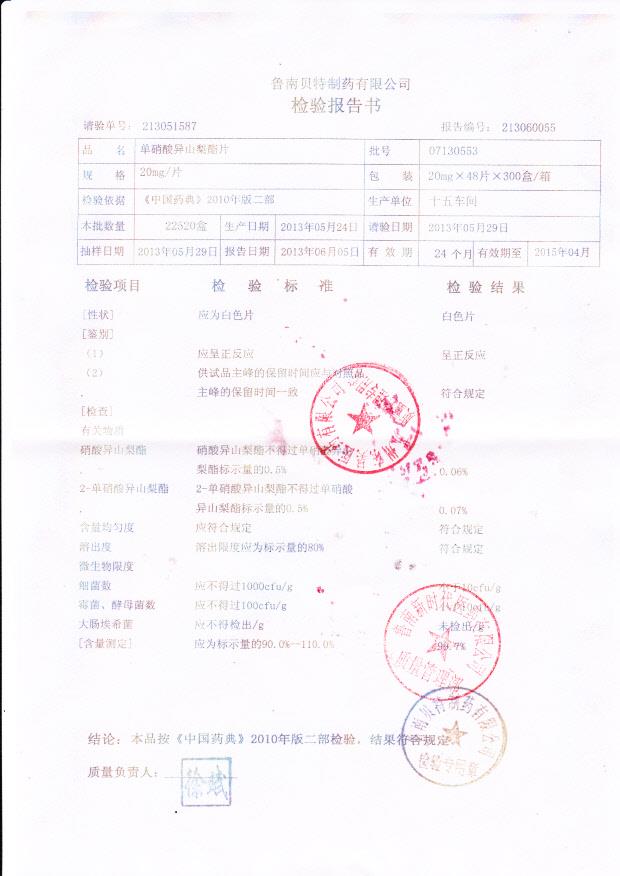 鲁南贝特制药有限公司
检验报告书
请验单号: 213051587 报告编号: 213060055
品 名 单硝酸异山梨酯片 批号 07130553
规 格 20mg/片 包 装 20mg×48片×300盒/箱
检验依据 《中国药典》2010年版二部 生产单位 十五车间
本批数量 22520盒 生产日期 2013年05月24日 请验日期 2013年05月29日
抽样日期 2013年05月29日 报告日期 2013年06月05日 有 效 期 24 个月 有效期至 2015年04月
检验项目 检 验 标 准 检 验 结 果
[性状] 应为白色片 白色片
[鉴别]
(1) 应呈正反应 呈正反应
(2) 供试品主峰的保留时间应与对照品
主峰的保留时间一致 符合规定
[检查]
有关物质
硝酸异山梨酯 硝酸异山梨酯不得过单硝酸异山
梨酯标示量的0.5% 0.06%
2-单硝酸异山梨酯 2-单硝酸异山梨酯不得过单硝酸
异山梨酯标示量的0.5% 0.07%
含量均匀度 应符合规定 符合规定
溶出度 溶出限度应为标示量的80% 符合规定
微生物限度
细菌数 应不得过1000cfu/g 小于10cfu/g
霉菌、酵母菌数 应不得过100cfu/g
大肠埃希菌 应不得检出/g 未检出/g
[含量测定] 应为标示量的90.0%--110.0% 99.7%
鲁南新时代医药有限公司
质量管理部
结论: 本品按《中国药典》2010年版二部检验, 结果符合规定
鲁南贝特制药有限公司
检验专用章
质量负责人:
徐斌